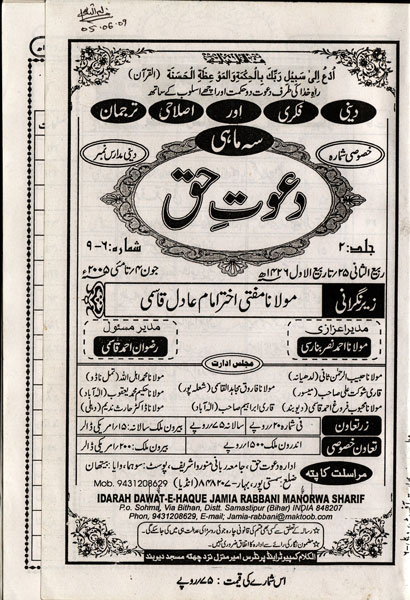 05.06.09
اُدْعُ اِلیٰ سَبِیْلِ رَبِّکَ بِالْحِکْمَةِ وَالْمَوْعِظَةِ الْحَسَنَةِ (القرآن)
راہ خدا کی طرف دعوت دو حکمت اور اچھے اسلوب کے ساتھ
دینی فکری اور اصلاحی ترجمان
سہ ماہی
خصوصی شمارہ
دینی مدارس نمبر
دعوتِ حق
جلد: ۲
شمارہ: ۶-۹
ربیع الثانی ۲۵ تا ربیع الاول ۱۴۲۶ھ
جون ۰۴ تا مئی ۲۰۰۵ء
زیر نگرانی
مولانا مفتی اختر امام عادل قاسمی
مدیر اعزازی
مولانا احمد نصر بنارسی
مدیر مسئول
رضوان احمد قاسمی
مجلس ادارت
مولانا حبیب الرحمٰن ثانی (لدھیانہ)
مولانا فاروق مجاہد القاسمی (شعلہ پور)
مولانا محمد اہل اللہ (تمل ناڈو)
قاری شوکت علی صابر (میسور)
مولانا حکیم محمد یعقوب (الہ آباد)
مولانا محبوب فروغ احمد قاسمی (دیوبند)
قاری ابراہیم صاحب (الہ آباد)
مولانا ڈاکٹر حارث ندیم (دہلی)
زر تعاون
فی شمارہ ۲۰ روپے سالانہ ۷۵ روپے
بیرون ملک سالانہ ۱۵ امریکی ڈالر
تعاون خصوصی
اندرون ملک ۱۵۰۰ روپے
بیرون ملک ۲۰۰ امریکی ڈالر
مراسلت کا پتہ
ادارہ دعوت حق، جامعہ ربانی منوروا شریف، پوسٹ: سوہما، وایا: بیتھان
ضلع: سمستی پور، بہار-۸۴۸۲۰۷ (انڈیا) Mob. 9431208629
IDARAH DAWAT-E-HAQUE JAMIA RABBANI MANORWA SHARIF
P.o. Sohma, Via Bithan, Distt. Samastipur (Bihar) INDIA 848207
Phon, 9431208629, E-mail; Jamia-rabbani@maktoob.com
الکلام کمپیوٹر اینڈ پرنٹرس امیر منزل نزد چھتہ مسجد دیوبند
اس شمارے کی قیمت: ۷۵ روپے